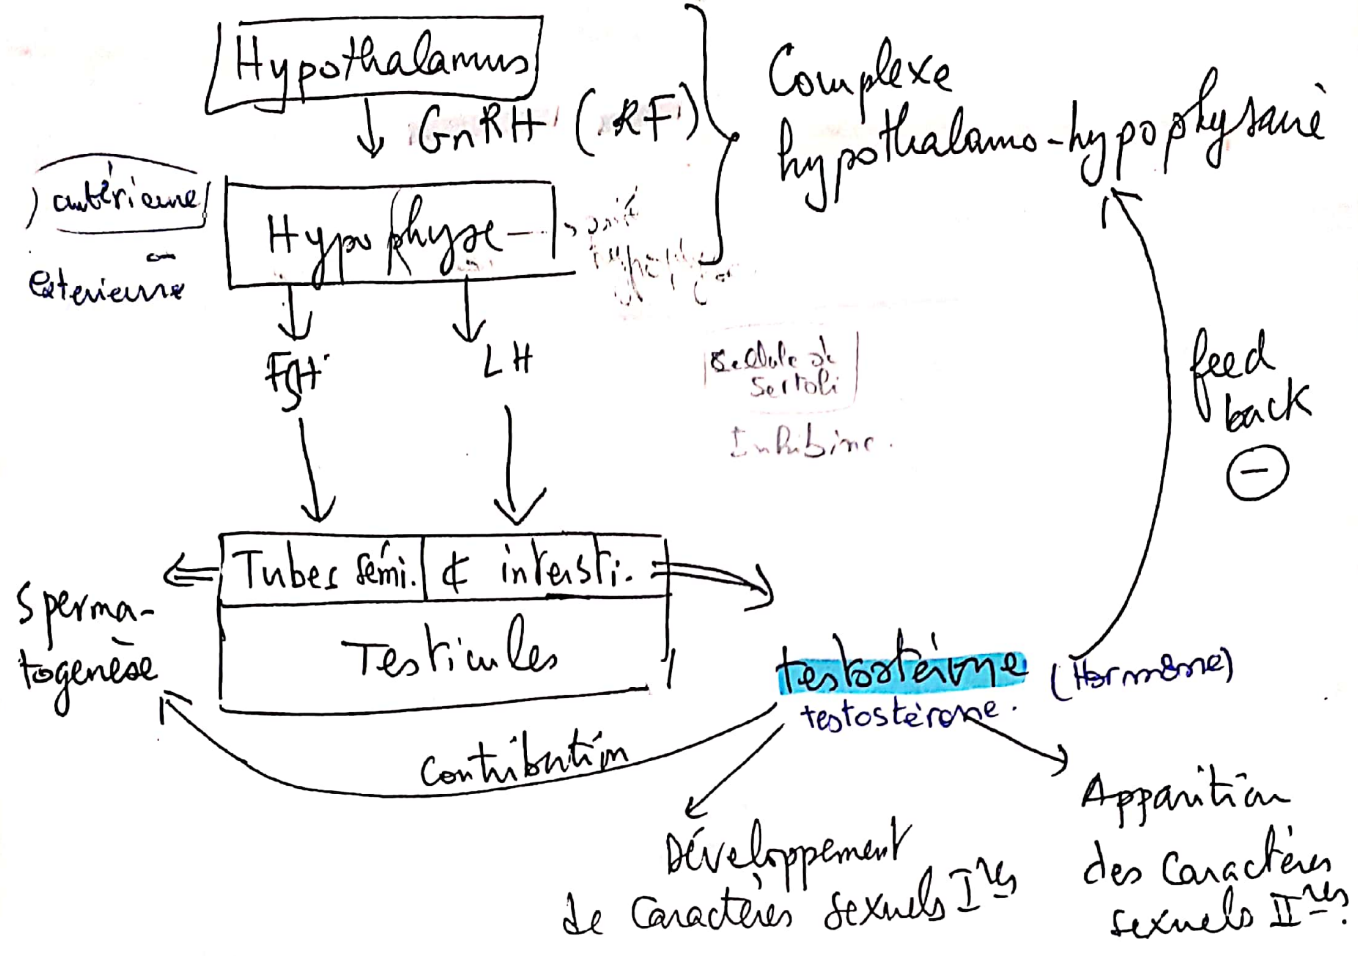 Hypothalamus
GnRH (RF)
Complexe
hypothalamo-hypophysaire
antérieure
Hypophyse
FSH
LH
Cellule de
Sertoli
Inhibine.
feed
back
-
Tubes sémi.
¢ intersti.
Sperma-
togenèse
Testicules
testostérone (Hormone)
testostérone.
Contribution
Développement
de Caractères sexuels Ires
Apparition
des Caractères
sexuels IIres.